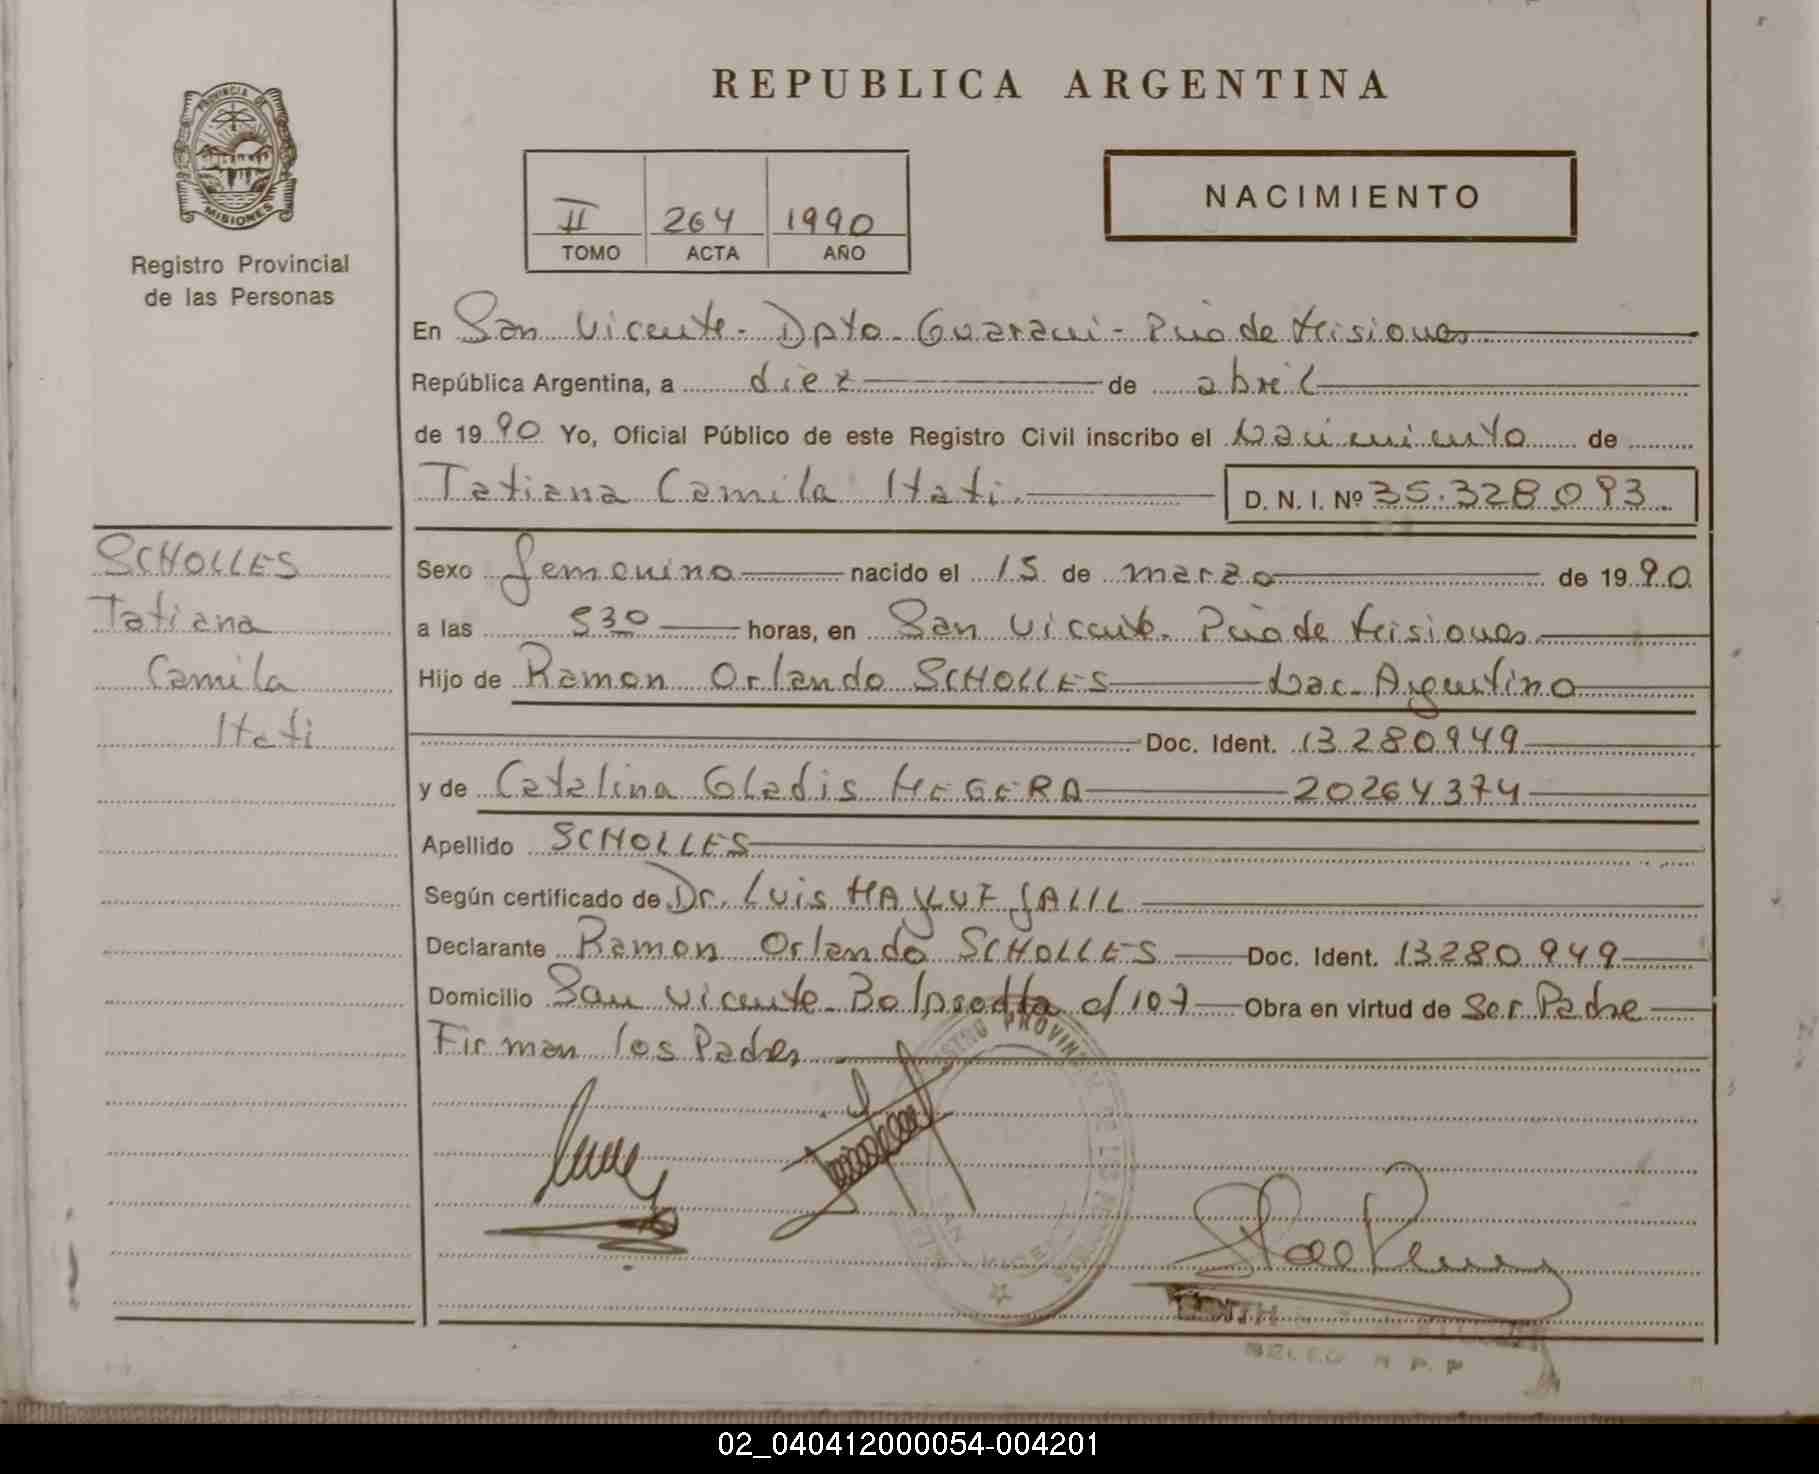 REPUBLICA ARGENTINA
PROVINCIA DE
MISIONES
Registro Provincial
de las Personas
II 264 1990
TOMO ACTA AÑO
NACIMIENTO
En San Vicente - Dpto. Guarani - Pcia de Misiones
República Argentina, a diez de abril
de 1990 Yo, Oficial Público de este Registro Civil inscribo el Nacimiento de
Tatiana Camila Itati. D. N. I. Nº 35.328.093
SCHOLLES
Tatiana
Camila
Itati
Sexo femenino nacido el 15 de marzo de 1990
a las 530 horas, en San Vicente. Pcia de Misiones
Hijo de Ramon Orlando SCHOLLES Nac. Argentino
Doc. Ident. 13280949
y de Catalina Gladis 20264374
Apellido SCHOLLES
Según certificado de Dr. Luis JALIL
Declarante Ramon Orlando SCHOLLES Doc. Ident. 13280949
Domicilio San Vicente c/107 Obra en virtud de Ser Padre
Firman los Padres
02_040412000054-004201